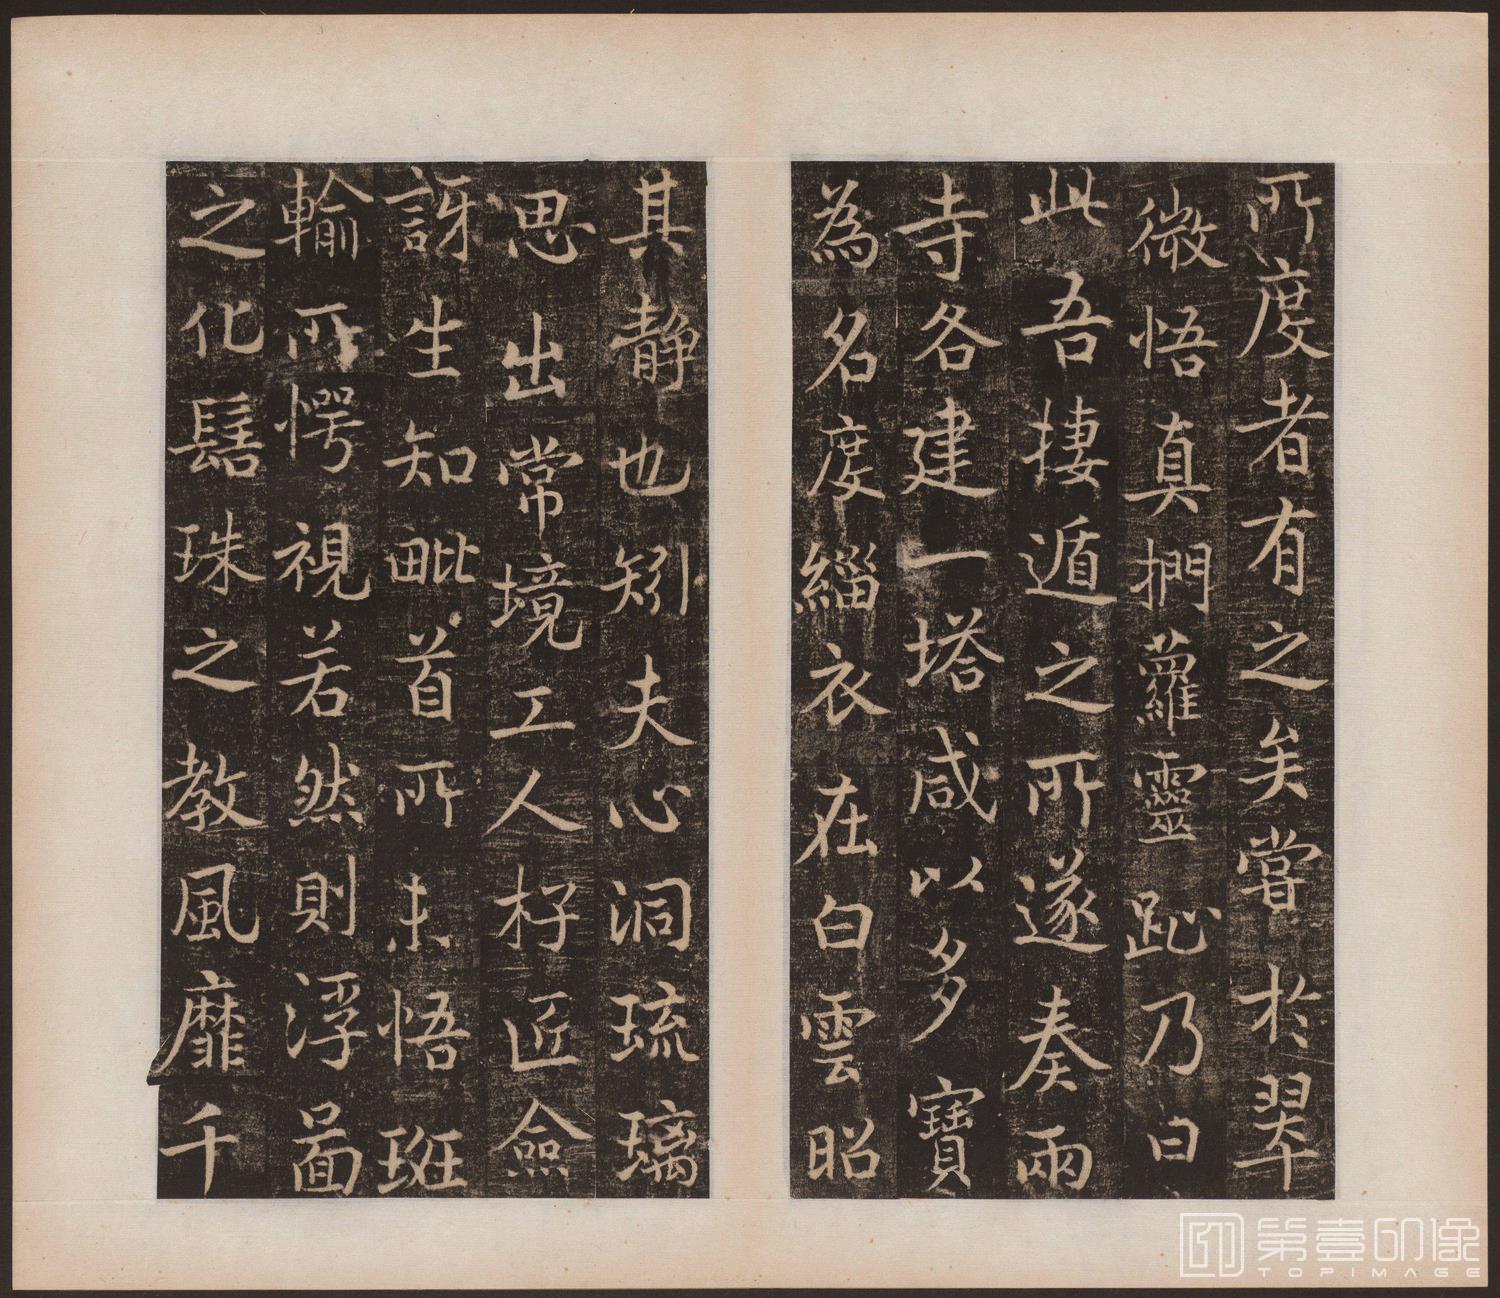 所度者有之矣嘗於翠
微悟真捫蘿靈趾乃曰
此吾捿遁之所遂奏兩
寺各建一塔咸以多寶
為名度緇衣在白雲昭
其静也矧夫心洞琉璃
思出常境工人杍匠僉
訝生知毗首所未悟班
輸所愕視若然則浮圖
之化髻珠之教風靡千
第壹印像
TOPIMAGE